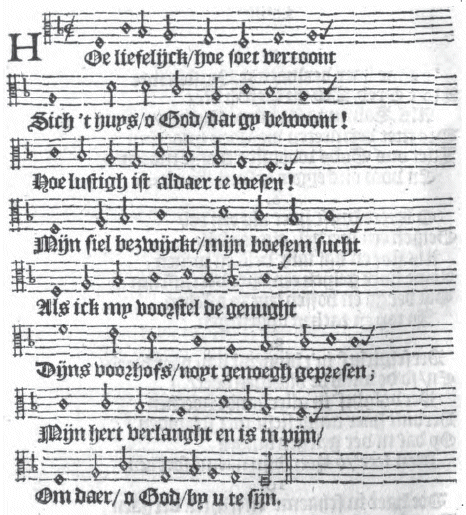 HOe liefelijck/hoe soet vertoont
Sich 't huys/o God/dat gy bewoont!
Hoe lustigh ist aldaer te wesen!
Mijn siel bezwijckt/mijn boesem sucht
Als ick my voorstel de genught
Dijns voorhofs/noyt genoegh gepresen;
Mijn hert verlanght en is in pijn/
Om daer/ o God/by u te sijn.